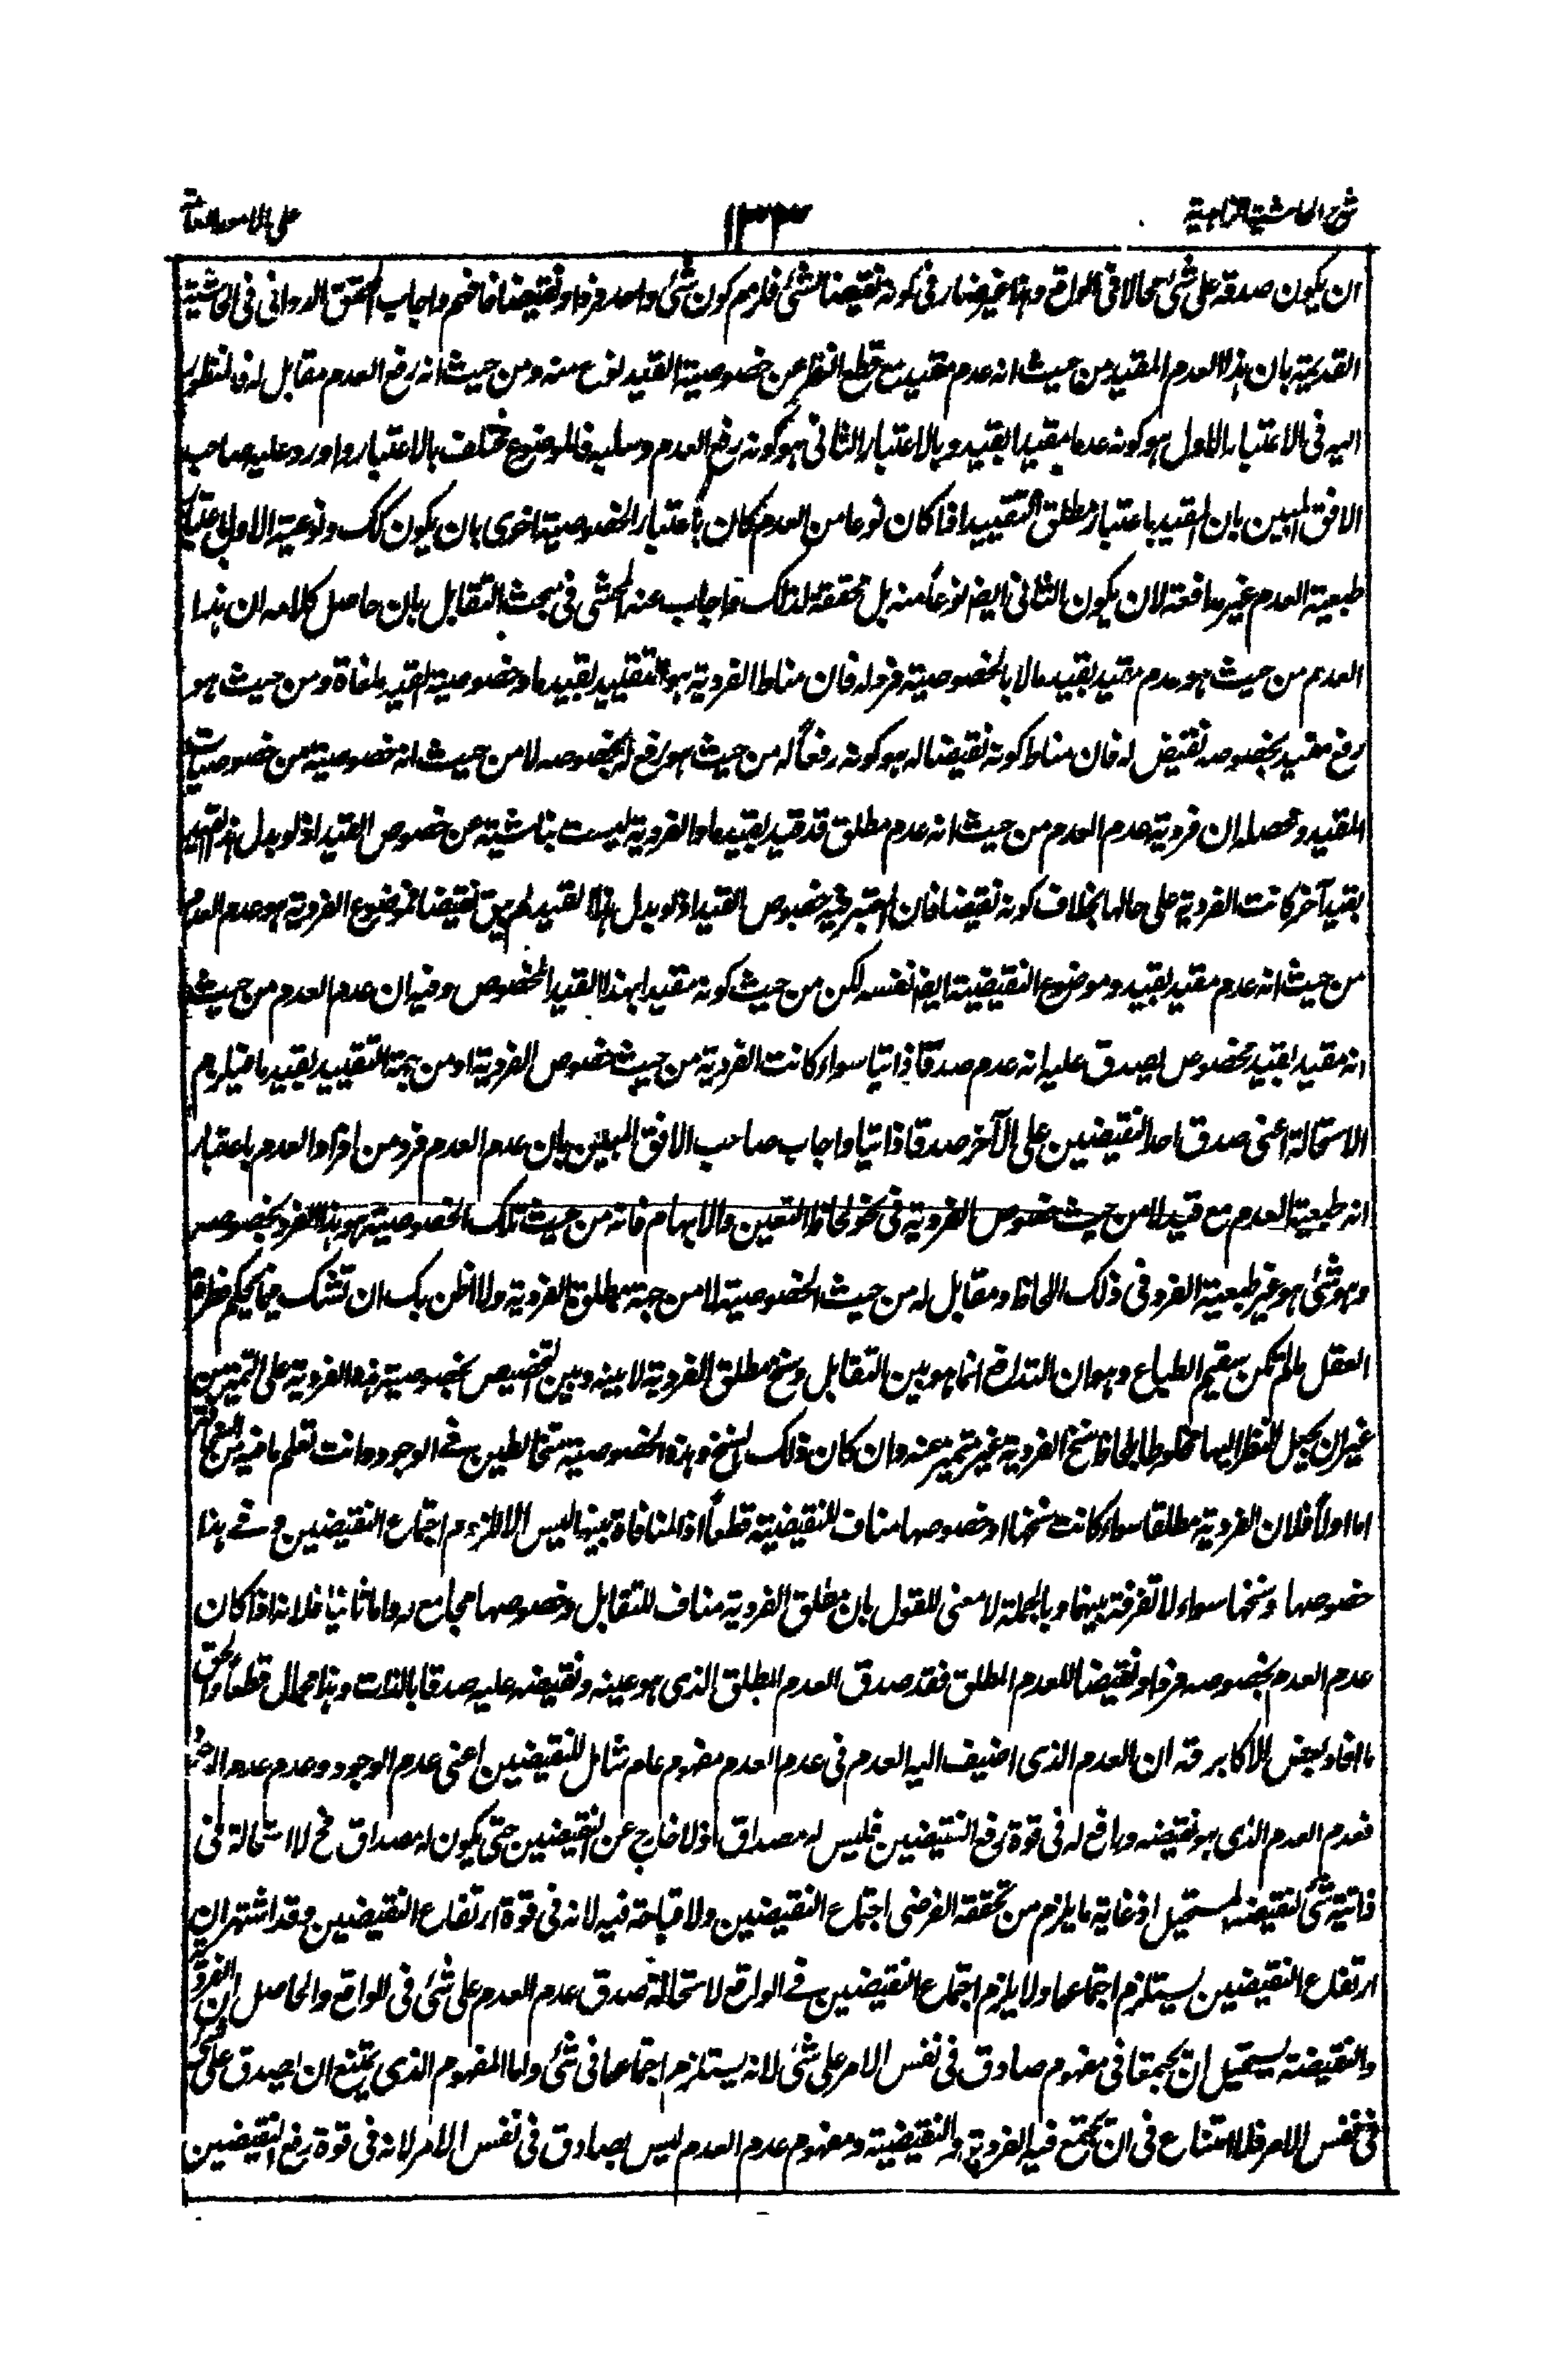 شرح الحاشية الزاهدية
١٣٣
على الامور العامة
ان يكون صدقه على شئ محالا فى الواقع وهذا غير ضار فى كونه نقيضا لشئ فلزم كون شئ واحد فردا ونقيضا فافهم واجاب المحقق الدوانى فى الحاشية
القديمة بان هذا العدم المقيد من حيث انه عدم مقيد مع قطع النظر عن خصوصية القيد نوع منه ومن حيث انه رفع العدم مقابل له فالمنظور
اليه فى الاعتبار الاول هو كونه عدما مقيدا بقيد وبالاعتبار الثانى هو كونه رفع العدم وسلبه فالموضوع مختلف بالاعتبار واورد عليه صاحب
الافق المبين بان المقيد باعتبار مطلق التقييد اذا كان نوعا من العدم كان باعتبار الخصوصية اخرى بان يكون كك ونوعية الاول باعتبار
طبيعة العدم غير مدافعة لان يكون الثانى ايضا نوعا منه بل محققة لذلك واجاب عنه المحشى فى مبحث التقابل بان حاصل كلامه ان هذا
العدم من حيث هو عدم مقيد بقيد ما لا بالخصوصية فرد له فان مناط الفردية هو التقييد بقيد ما وخصوصية القيد ملغاة ومن حيث هو
رفع مقيد بخصوصه نقيض له فان مناط كونه نقيضا له هو كونه رفعا له من حيث هو رفع له بخصوصه لا من حيث انه خصوصية من خصوصيات
المقيد ومحصله ان فردية عدم العدم من حيث انه عدم مطلق قد قيد بقيد ما والفردية ليست بناشية عن خصوص القيد اذ لو بدل هذا القيد
بقيد آخر كانت الفردية على حالها بخلاف كونه نقيضا فان المعتبر فيه خصوص القيد اذ لو بدل هذا القيد لم يبق نقيضا فموضوع الفردية هو عدم العدم
من حيث انه عدم مقيد بقيد وموضوع النقيضية ايضا نفسه لكن من حيث كونه مقيدا بهذا القيد المخصوص وفيه ان عدم العدم من حيث
انه مقيد بقيد مخصوص يصدق عليه انه عدم صدقا ذاتيا سواء كانت الفردية من حيث خصوص الفردية او من جهة التقييد بقيد ما فيلزم
الاستحالة اعنى صدق احد النقيضين على الآخر صدقا ذاتيا واجاب صاحب الافق المبين بان عدم العدم فرد من افراد العدم باعتبار
انه طبيعة العدم مع قيد لا من حيث خصوص الفردية فى نحو لحاظ التعين والابهام فانه من حيث تلك الخصوصية هو هذا الفرد بخصوصه
وهو شئ هو غير طبيعة الفرد فى ذلك اللحاظ ومقابل له من حيث الخصوصية لا من جهة مطلق الفردية ولا اظن بك ان تشك فيما يحكم صراح
العقل مالم تكن سقيم الطباع وهو ان التدافع انما هو بين التقابل وسنخ مطلق الفردية لا بينه وبين التخصيص بخصوصية هذه الفردية على التميز من
غير ان يجعل النظر اليها مخلوطا بلحاظ سنخ الفردية غير متميز عنه وان كان ذلك السنخ وهذه الخصوصية متخالطين فے الوجود وانت تعلم ما فيه من السخافة
اما اولا فلان الفردية مطلقا سواء كانت سنخها او خصوصها مناف للنقيضية قطعا اذ المنافاة بينها ليس الا للزوم اجتماع النقيضين وفے هذا
خصوصها وسنخها سواء لا تفرقة بينهما وبالجملة لا معنى للقول بان مطلق الفردية مناف للتقابل وخصوصها مجامع له واما ثانيا فلانه اذا كان
عدم العدم بخصوصه فردا ونقيضا للعدم المطلق فقد صدق العدم المطلق الذى هو عينه ونقيضه عليه صدقا بالذات وهذا محال قطعا والحق
ما افاد بعض الاكابر قده ان العدم الذى اضيف اليه العدم فى عدم العدم مفهوم عام شامل للنقيضين اعنى عدم الوجود وعدم عدم الوجود
فعدم العدم الذى هو نقيضه ورافع له فى قوة رفع النقيضين فليس له مصداق اذ لا خارج عن النقيضين حتى يكون له مصداق فح لا استحالة فى
ذاتية شئ لنقيضه المستحيل اذ غاية ما يلزم من تحققه الفرضى اجتماع النقيضين ولا قباحة فيه لانه فى قوة ارتفاع النقيضين وقد اشتهر ان
ارتفاع النقيضين يستلزم اجتماعهما ولا يلزم اجتماع النقيضين فے الواقع لاستحالة صدق عدم العدم على شئ فى الواقع والحاصل ان الفردية
والنقيضة يستحيل ان يجتمعا فى مفهوم صادق فى نفس الامر على شئ لانه يستلزم اجتماعهما فى شئ واما المفهوم الذى يمتنع ان يصدق على شئ
فى نفس الامر فلا امتناع فى ان يجتمع فيه الفردية والنقيضية ومفهوم عدم العدم ليس بصادق فى نفس الامر لانه فى قوة رفع النقيضين